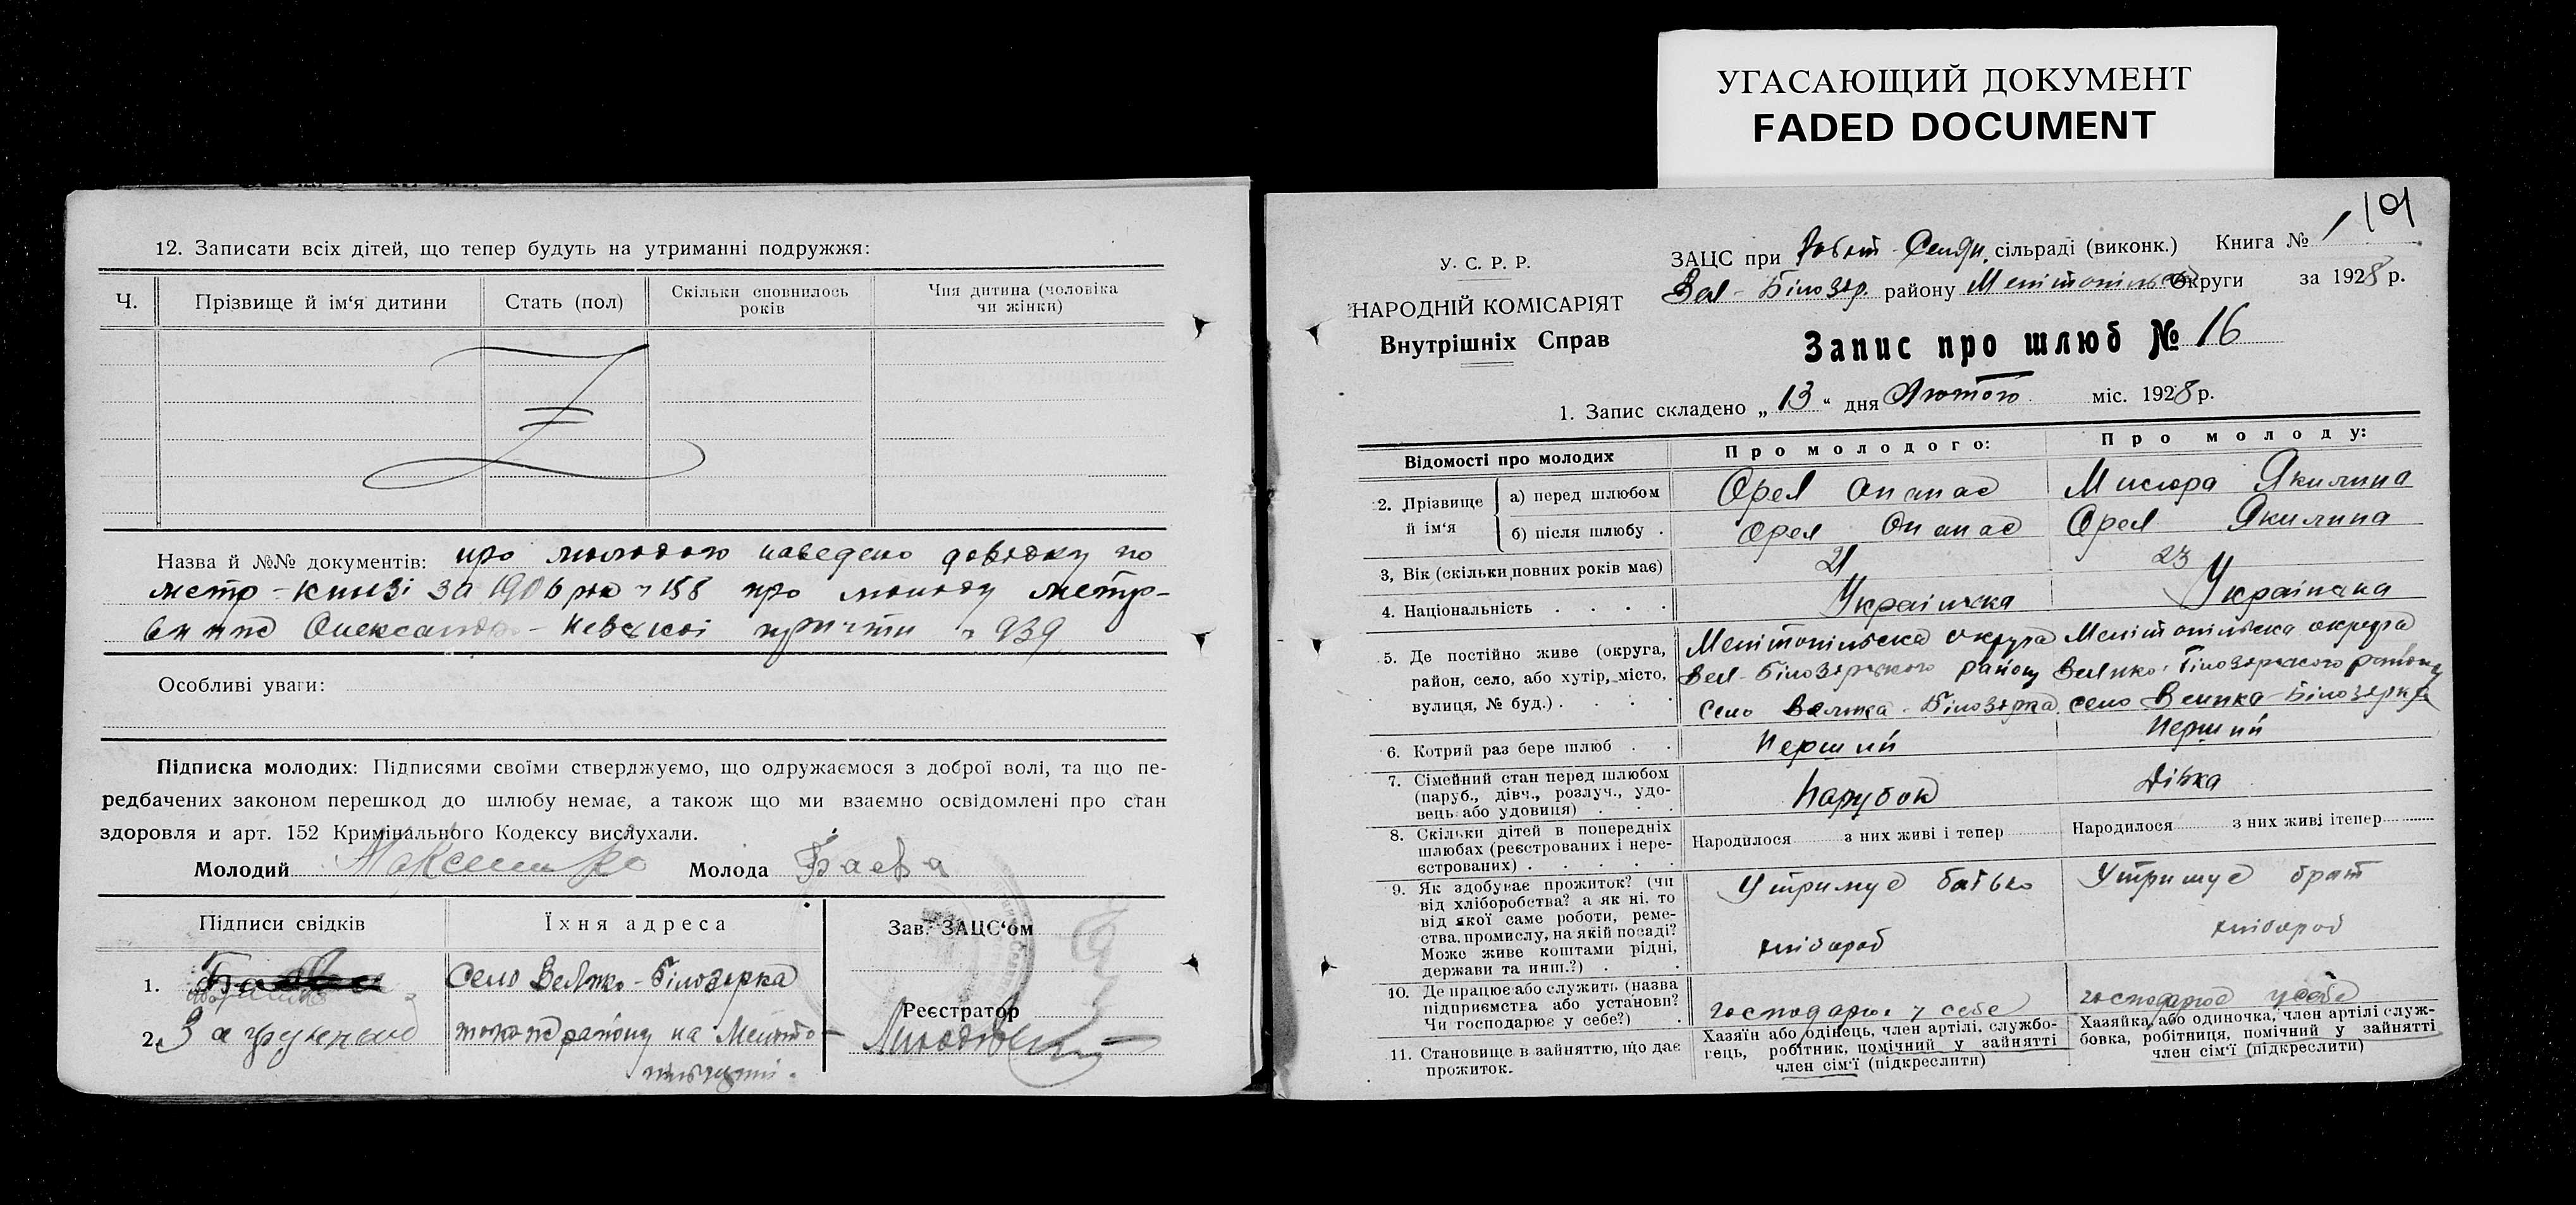 УГАСАЮЩИЙ ДОКУМЕНТ
FADED DOCUMENT
12. Записати всіх дітей, що тепер будуть на утриманні подружжя:
Ч.
Прізвище й ім‘я дитини
Стать (пол)
Скільки сповнилось
років
Чия дитина (чоловіка
чи жінки)
Назва й №№ документів: про молодого наведено довідку по
метр-книзі за 1906 рік 158 про молоду метр-
Олександр-Невської 939
Особливі уваги:
Підписка молодих: Підписями своїми стверджуємо, що одружаємося з доброї волі, та що пе-
редбачених законом перешкод до шлюбу немає, а також що ми взаємно освідомлені про стан
здоровля и арт. 152 Кримінального Кодексу вислухали.
Молодий Молода Баєва
Підписи свідків
Їхня адреса
1.
село Велико-Білозерка
2.
району на Меліто-
Зав. ЗАЦС‘ом
Реєстратор
101
У. С. Р. Р.
НАРОДНІЙ КОМІСАРІЯТ
Внутрішніх Справ
ЗАЦС при сільраді (виконк.) Книга № 1
Вел-Білозер. району Мелітопільськ округи за 1928 р.
Запис про шлюб № 16
1. Запис складено „13“ дня Лютого міс. 1928 р.
Відомості про молодих
Про молодого:
Про молоду:
2. Прізвище й ім‘я
а) перед шлюбом
Орел Опанас
Мисюра Якилина
б) після шлюбу .
Орел Опанас
Орел Якилина
3, Вік (скільки повних років має)
21
23
4. Національність . . . .
Українська
Українська
5. Де постійно живе (округа,
район, село, або хутір, місто,
вулиця, № буд.) . . . .
Мелітопільська округа
Вел-Білозерського району
Село Велика-Білозерка
Мелітопільська округа
Велико-Білозерського району
село Велика-Білозерка
6. Котрий раз бере шлюб . .
Перший
Перший
7. Сімейний стан перед шлюбом
(паруб., дівч., розлуч., удо-
вець або удовиця) . . .
Парубок
Дівка
8. Скільки дітей в попередніх
шлюбах (реєстрованих і нере-
єстрованих) . . . . .
Народилося з них живі і тепер
Народилося з них живі ітепер
9. Як здобуває прожиток? (чи
від хліборобства? а як ні. то
від якої саме роботи, реме-
ства, промислу, на якій посаді?
Може живе коштами рідні,
держави та инш.?) . .
Утримує батько
хлібороб
Утримує брат
хлібороб
10. Де працює або служить (назва
підприємства або установи?
Чи господарює у себе?) .
господарює у себе
господарює у себе
11. Становище в зайняттю, що дає
прожиток.
Хазяїн або одінець, член артілі, службо-
гець, робітник, помічний у зайнятті
член сім‘ї (підкреслити)
Хазяйка, або одиночка, член артілі служ-
бовка, робітниця, помічний у зайнятті
член сім‘ї (підкреслити)